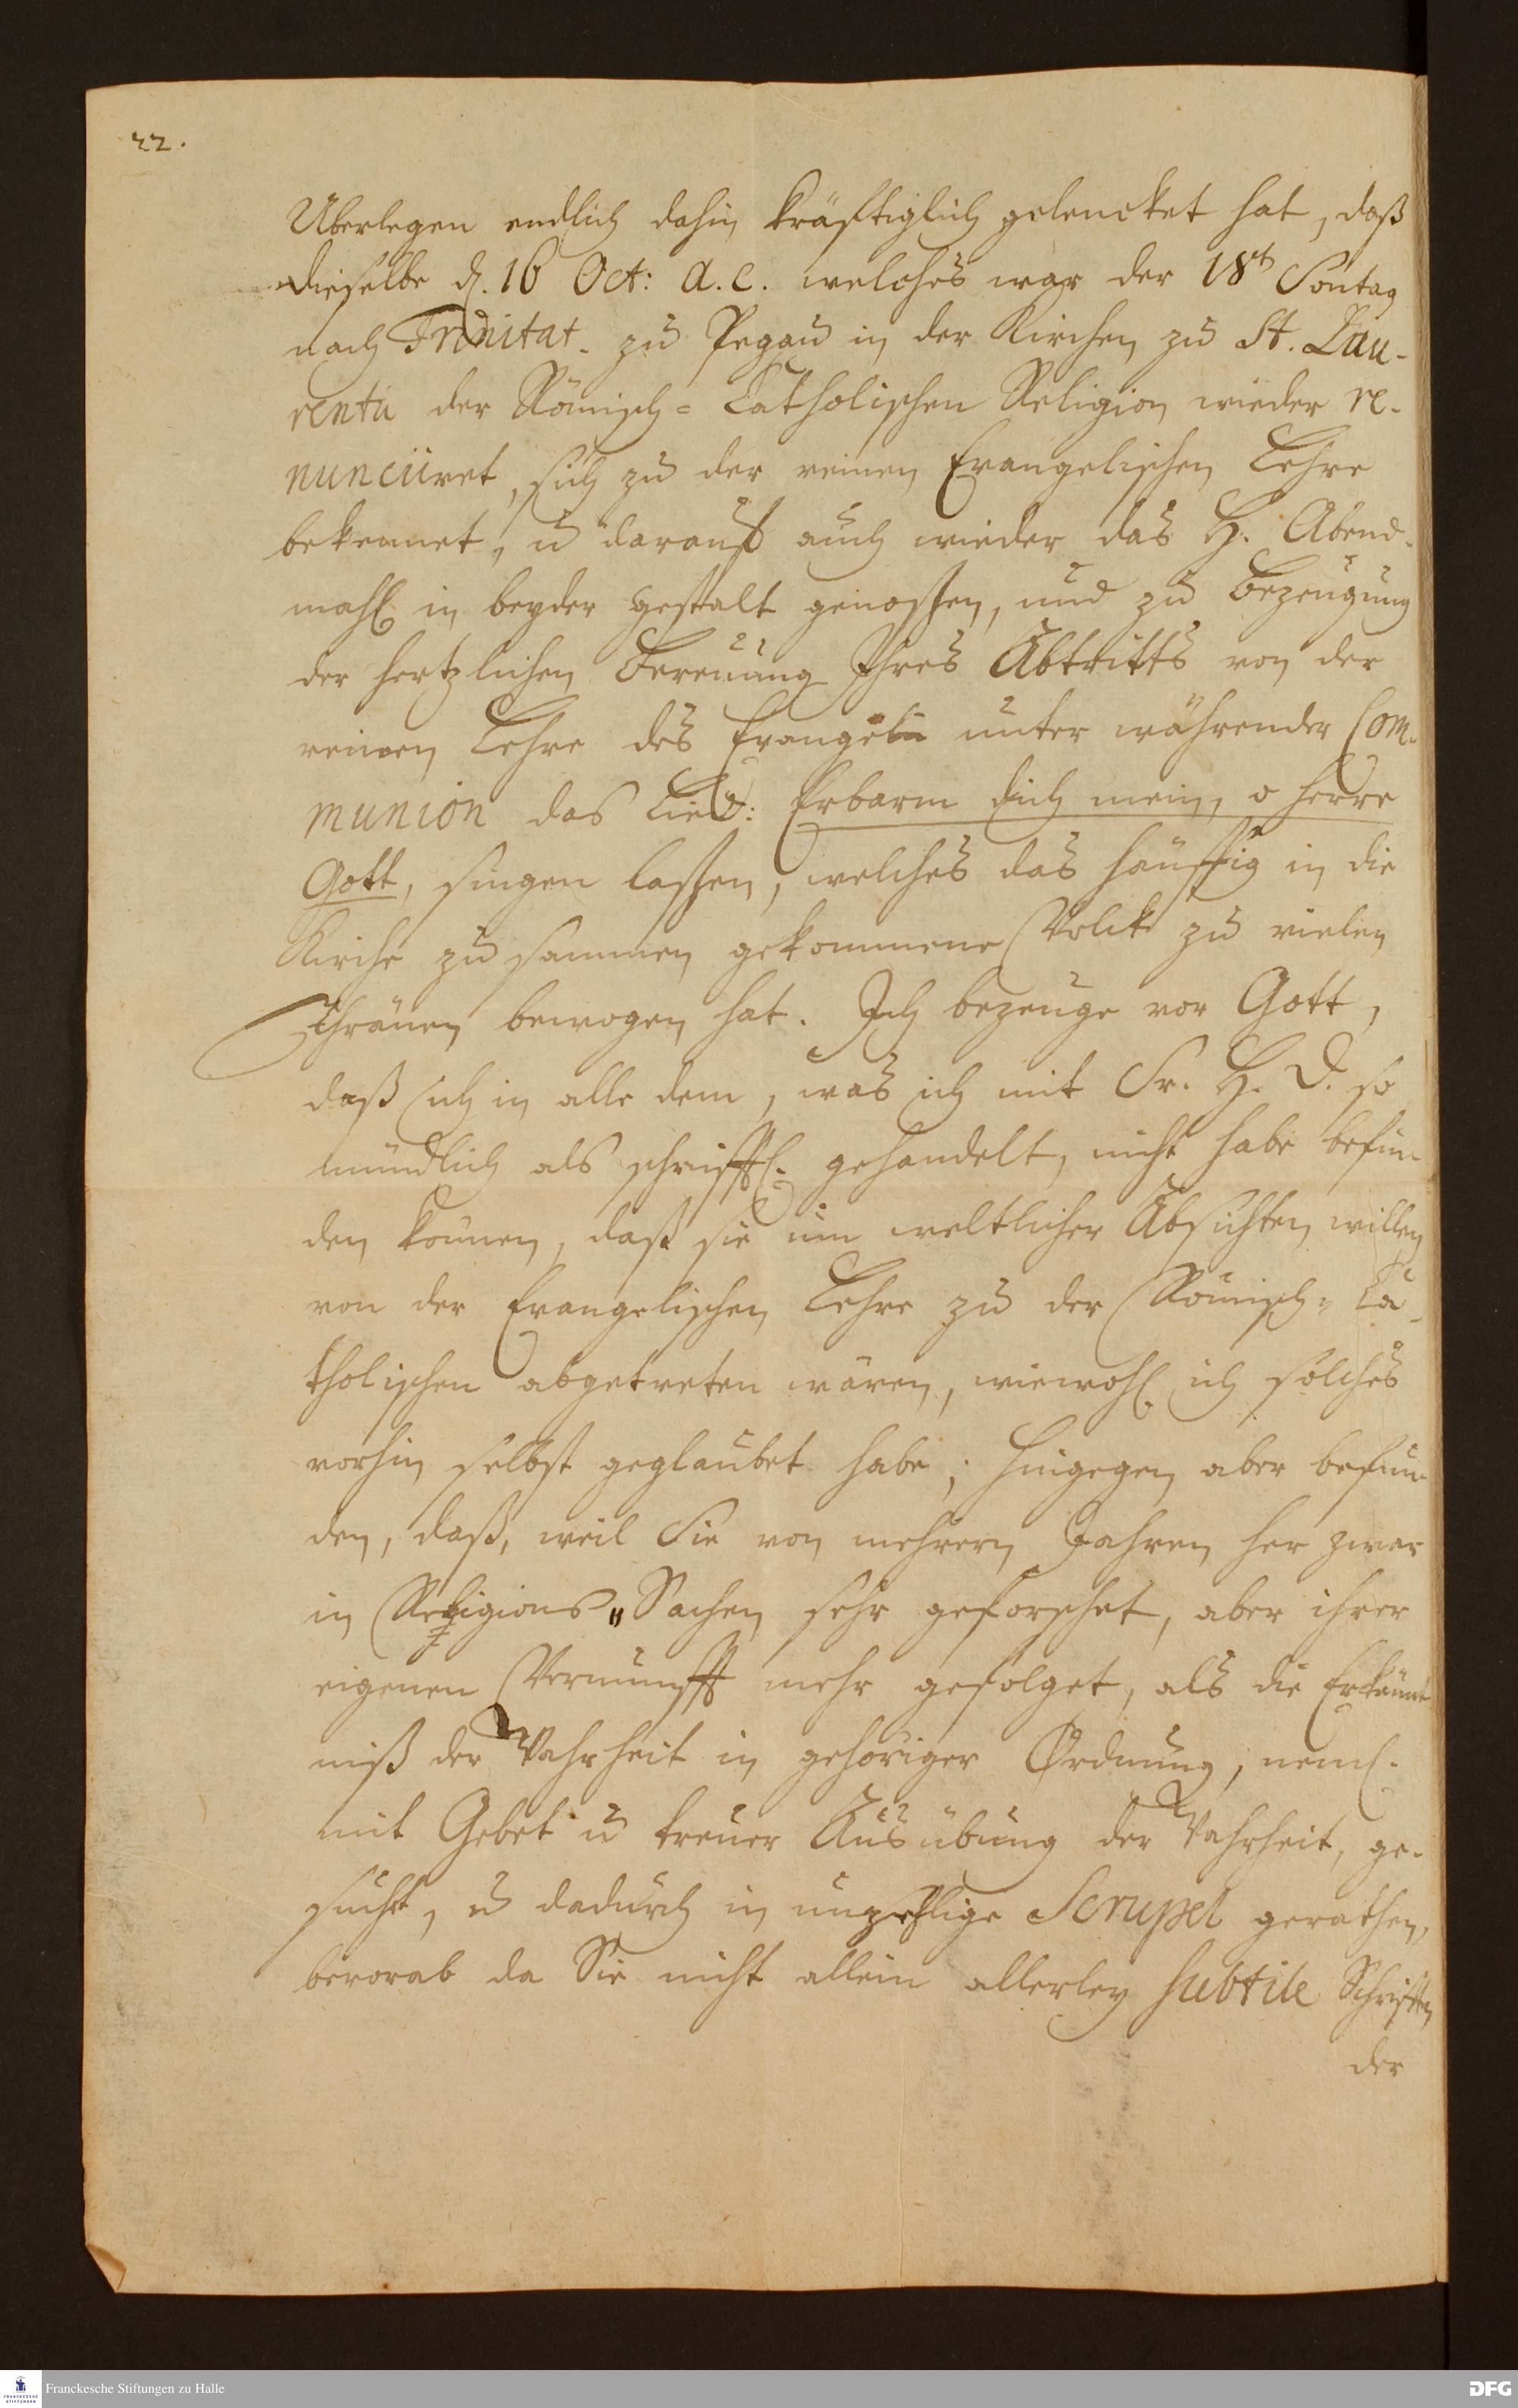 22.
Uberlegen endlich dahin kräfftiglich gelencket hat, daß
dieselbe d. 16 Oct: a. c. welches war der 18t Sontag
nach Trinitat. zu Pegau in der Kirchen zu St. Lau-
rentii der Römisch-Catholischen Religion wieder re-
nunciiret, sich zu der reinen Evangelischen Lehre
bekennet, u darauf auch wieder das H. Abend-
mahl in beyder Gestalt genoßen, und zu Bezeugung
der hertzlichen Bereuung Ihres Abtritts von der
reinen Lehre des Evangelii unter währender Com-
munion das Lied: Erbarm dich mein, o Herre
Gott, singen laßen, welches das häuffig in die
Kirche zusammen gekommene Volck zu vielen
Thränen bewogen hat. Ich bezeuge vor Gott,
daß ich in alle dem, was ich mit Sr. H. D. so
mündlich als schrifftl. gehandelt, nicht habe befin-
den können, daß sie üm weltlicher Absichten willen
von der Evangelischen Lehre zu der Römisch-Ca-
tholischen abgetreten wären, wiewohl ich solches
vorhin selbst geglaubet habe; hingegen aber befun-
den, daß, weil Sie von mehrern Jahren her zwar
in Religions-Sachen sehr geforschet, aber ihrer
eigenen Vernunfft mehr gefolget, als die Erkännt-
niß der Wahrheit in gehöriger Ordnung, neml.
mit Gebet u treuer Ausübung der Wahrheit, ge-
sucht, u dadurch in unzehlige Scrupel gerathen,
bevorab da Sie nicht allein allerley subtile Schrifften
der
Franckesche Stiftungen zu Halle
FRANCKESCHE STIFTUNGEN
DFG